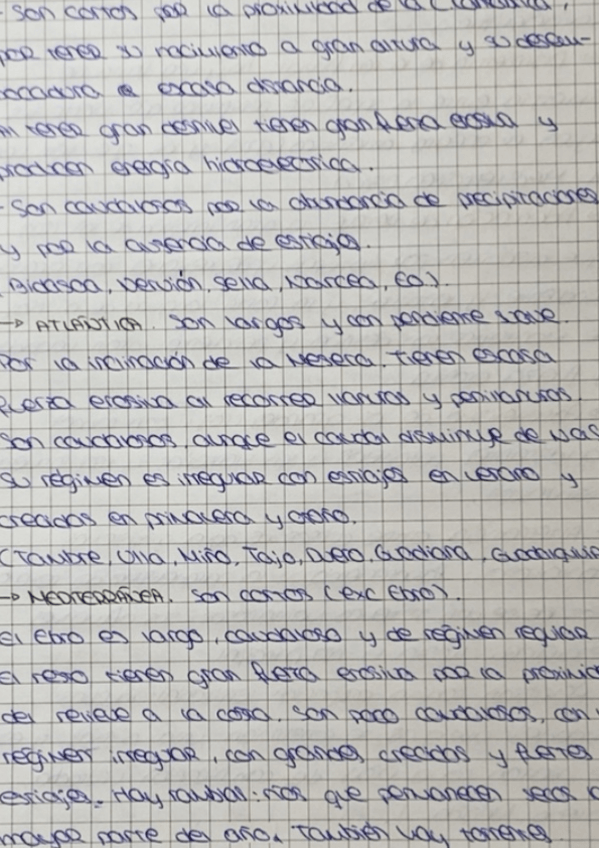 - Son cortos por la proximidad de la Cantábrica,
por tener su nacimiento a gran altura y su desem-
bocadura a escasa distancia.
tener gran desnivel tienen gran fuerza erosiva y
producen energía hidroeléctrica.
- Son caudalosos por la abundancia de precipitaciones
y por la ausencia de estiaje.
Bidasoa, Nervión, Sella, Narcea, Eo).
→ ATLÁNTICA. Son largos y con pendiente suave.
Por la inclinación de la Meseta. Tienen escasa
fuerza erosiva al recorrer llanuras y penillanuras.
Son caudalosos, aunque el caudal disminuye de
Su régimen es irregular con estiajes en verano y
crecidas en primavera y otoño.
(Tambre, Ulla, Miño, Tajo, Duero, Guadiana, Guadalquivir
→ MEDITERRÁNEA. Son cortos (exc Ebro).
El Ebro es largo, caudaloso y de régimen regular
el resto tienen gran fuerza erosiva por la
del relieve a la costa. Son poco caudalosos, con
régimen irregular, con grandes crecidas y fuertes
estiajes. Hay ramblas: ríos que permanecen secos
mayor parte del año. También hay torrentes.